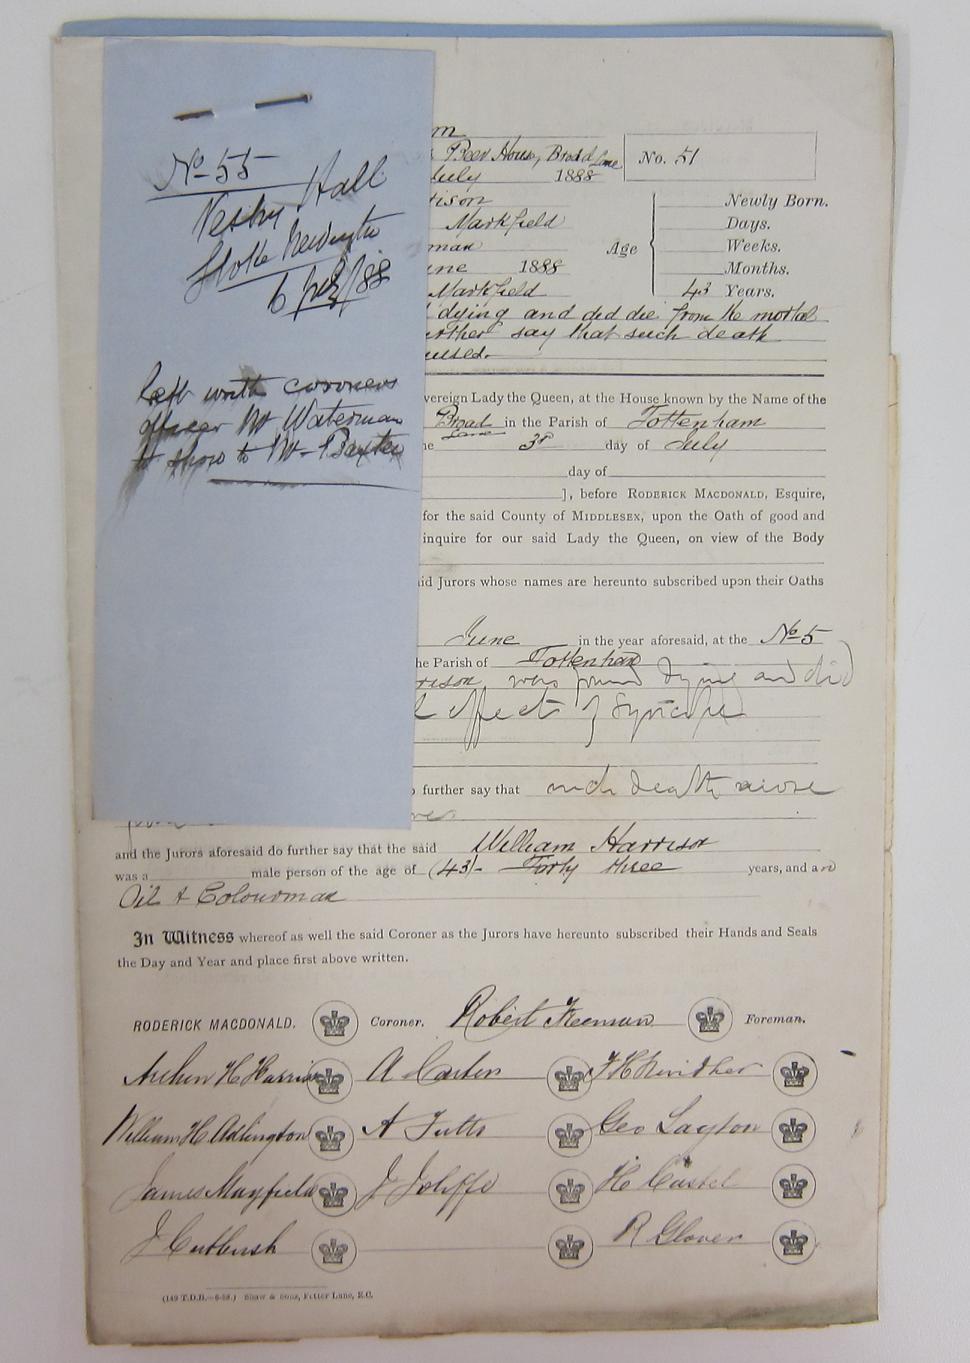 No 55
Vestry Hall
Stoke Newington
6 July/88
Left with coroners
officer Mr Waterman
to show to Mr Baxter
m
Beer House, Broad Lane
No. 51
July 1888
rison
Newly Born.
Markfield
Days.
man
Age
Weeks.
une 1888
Months.
Markfield
43 Years.
dying and did die from the mortal
urther say that such death
vereign Lady the Queen, at the House known by the Name of the
Broad Lane in the Parish of Tottenham
he 3rd day of July
day of
], before RODERICK MACDONALD, Esquire,
for the said County of MIDDLESEX, upon the Oath of good and
inquire for our said Lady the Queen, on view of the Body
id Jurors whose names are hereunto subscribed upon their Oaths
June in the year aforesaid, at the No 5
he Parish of Tottenham
rison was found dying and did
l effects of Syncope
further say that such death arose
and the Jurors aforesaid do further say that the said William Harrison
was a male person of the age of (43)- Forty three years, and an
Oil & Colourman
In Witness whereof as well the said Coroner as the Jurors have hereunto subscribed their Hands and Seals
the Day and Year and place first above written.
RODERICK MACDONALD. Coroner. Robert Freeman Foreman.
H Harrison A Carter F H
William H Adlington A Tutts Geo Layton
James Mayfield J Joliffe H Castel
J Cutbush R Glover
(149 T.D.B.—6-88.) Shaw & Sons, Fetter Lane, E.C.